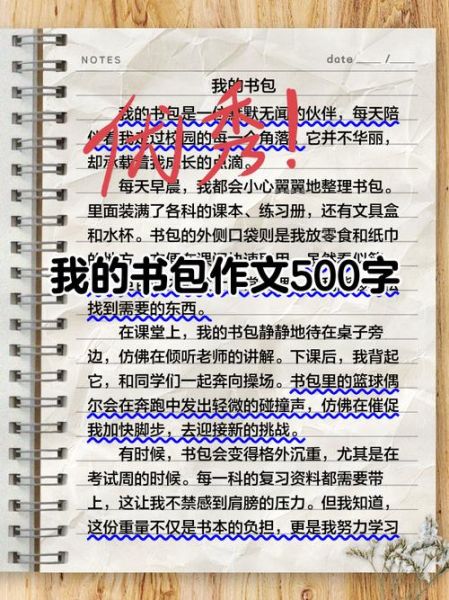 NOTES
date /
我的书包
我的书包是一位默默无闻的伙伴，每天陪
伴着我走过校园的每一个角落。它并不华丽，
却承载着我成长的点滴。
每天早晨，我都会小心翼翼地整理书包。
里面装满了各科的课本、练习册，还有文具盒
和水杯。书包的外侧口袋则是我放零食和纸巾
我的书包作文500字
找到需要的东西。
在课堂上，我的书包静静地待在桌子旁
边，仿佛在倾听老师的讲解。下课后，我背起
它，和同学们一起奔向操场。书包里的篮球偶
尔会在奔跑中发出轻微的碰撞声，仿佛在催促
我加快脚步，去迎接新的挑战。
有时候，书包会变得格外沉重，尤其是在
考试周的时候。每一科的复习资料都需要带
上，这让我不禁感到肩膀的压力。但我知道，
这份重量不仅是书本的负担，更是我努力学习
优秀！